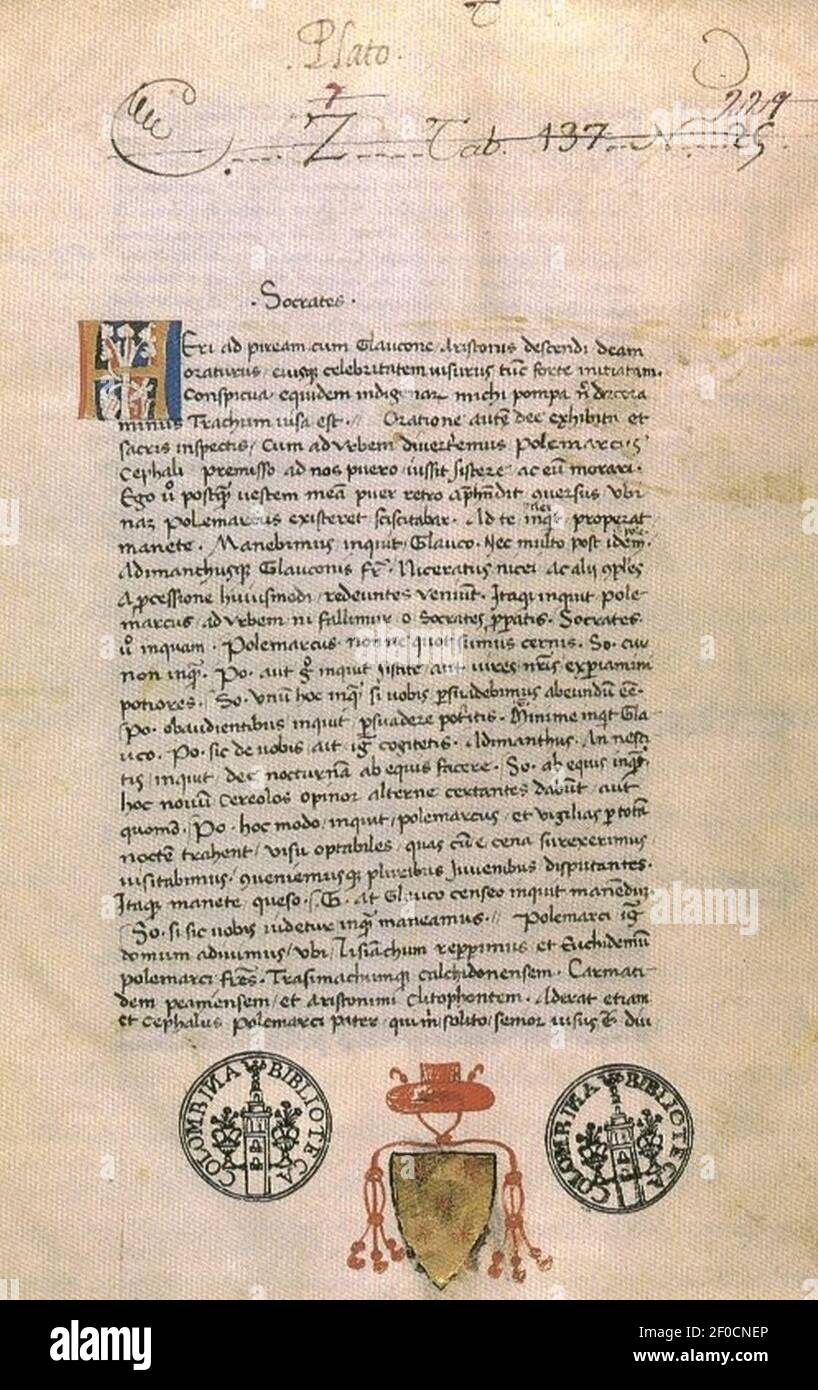 Plato.
7
229
Z Tab. 137 N 25
· Socrates ·
HEri ad piream cum Glaucone Aristonis descendi deam
oraturus / eiusq celebritatem uisurus tūc forte initiatam.
Conspicua equidem indigenar michi pompa
minus Trachum uisa est · // Oratione autē dee exhibita et
sacris inspectis / Cum ad vrbem diverteremus Polemarcus
Cephali premisso ad nos puero / iussit sistere ac eū morari ·
Ego postq uestem meā puer retro versus vbi
nam Polemarcus existeret sciscitabar · Ad te inqt properat
manete · Manebimus inquit Glauco · Nec multo post idem
Adimanthusq Glauconis fr · Niceratus nicei ac alij
A pcessione huiusmodi / redeuntes veniūt · Itaq inquit pole
marcus / ad vrbem ni fallimur o Socrates ppatis · Socrates ·
inquam · Polemarcus · nonne quot simus cernis · So · cur
non inq · Po · aut inquit sistite / aut uires nras expiamini
potiores · So · Vnū hoc inq si uobis psuadebimus abeundū ēē ·
Po · obaudientibus inquit psuadere potestis · Minime inqt Gla
uco · Po · sic de uobis / ait cogitetis · Adimanthus · An nesci
tis / inquit / dee nocturnā ab equis facere · So · ab equis inq
hoc nouū Cereolos opinor alterne certantes dabūt / aut
quomō · Po · hoc modo / inquit / polemarcus / et vigilias p totā
noctē trahent / visu optabiles / quas cū e cena surexerimus
uisitabimus / queniemusq pluribus Juuenibus disputantes ·
Itaq manete / queso · G · At Glauco censeo inquit manēdū ·
So · si sic uobis uidetur inq maneamus · // Polemarci
domum adiuimus / vbi / Lisiachum repperimus et Euthidemū
polemarci frēs · Trasimachumq calchidonensem · Carmati
dem peamensem / et Aristonimi Clitophontem · Aderat etiam
et Cephalus Polemarci Pater / qui solito / senior uisus ē diu
COLOMBINA BIBLIOTECA
COLOMBINA BIBLIOTECA
alamy
alamy
alamy
Image ID: 2F0CNEP
www.alamy.com